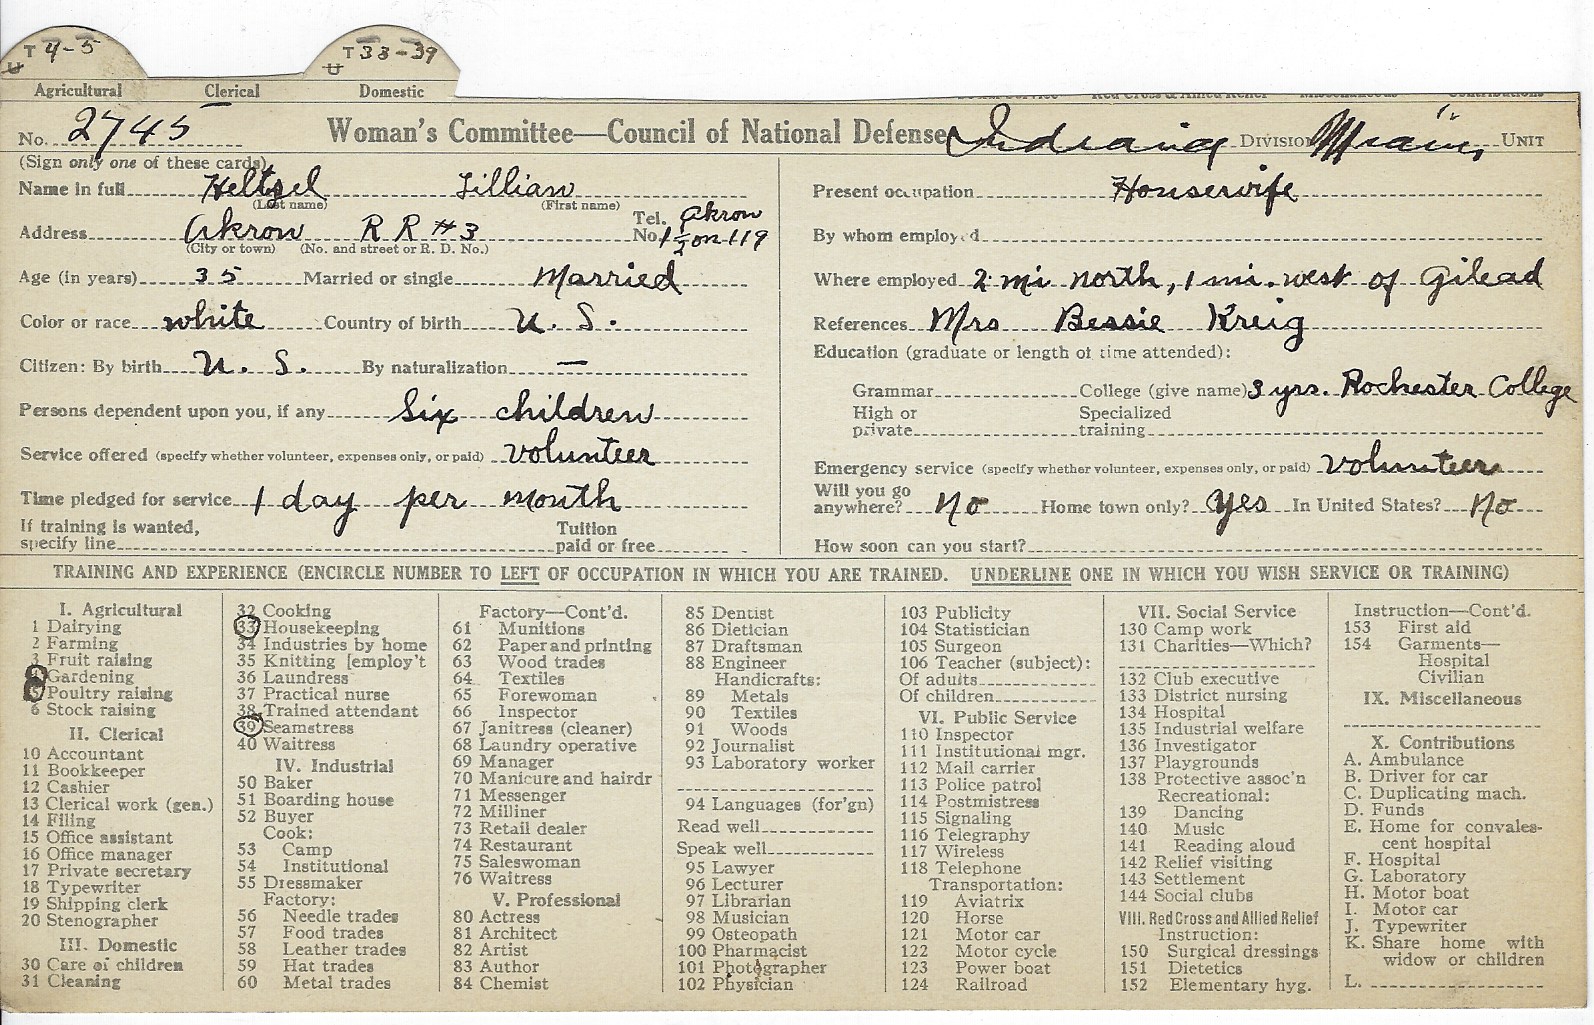 T 4-5 T 33-39
U U
Agricultural Clerical Domestic
No. 2745 Woman's Committee—Council of National Defense Indiana DIVISION Miami UNIT
(Sign only one of these cards)
Name in full Heltzel Lillian
(Last name) (First name)
Address Akron R R #3 Tel. No. Akron 1 1/2 on 119
(City or town) (No. and street or R. D. No.)
Age (in years) 35 Married or single Married
Color or race white Country of birth U. S.
Citizen: By birth U. S. By naturalization —
Persons dependent upon you, if any Six children
Service offered (specify whether volunteer, expenses only, or paid) volunteer
Time pledged for service 1 day per month
If training is wanted, specify line Tuition paid or free
Present occupation Housewife
By whom employed
Where employed 2 mi north, 1 mi. west of Gilead
References Mrs Bessie Kreig
Education (graduate or length of time attended):
Grammar College (give name) 3 yrs. Rochester College
High or private Specialized training
Emergency service (specify whether volunteer, expenses only, or paid) volunteer
Will you go anywhere? No Home town only? Yes In United States? No
How soon can you start?
TRAINING AND EXPERIENCE (ENCIRCLE NUMBER TO LEFT OF OCCUPATION IN WHICH YOU ARE TRAINED. UNDERLINE ONE IN WHICH YOU WISH SERVICE OR TRAINING)
I. Agricultural
1 Dairying
2 Farming
3 Fruit raising
4 Gardening
5 Poultry raising
6 Stock raising
II. Clerical
10 Accountant
11 Bookkeeper
12 Cashier
13 Clerical work (gen.)
14 Filing
15 Office assistant
16 Office manager
17 Private secretary
18 Typewriter
19 Shipping clerk
20 Stenographer
III. Domestic
30 Care of children
31 Cleaning
32 Cooking
33 Housekeeping
34 Industries by home
35 Knitting [employ't
36 Laundress
37 Practical nurse
38 Trained attendant
39 Seamstress
40 Waitress
IV. Industrial
50 Baker
51 Boarding house
52 Buyer
Cook:
53 Camp
54 Institutional
55 Dressmaker
Factory:
56 Needle trades
57 Food trades
58 Leather trades
59 Hat trades
60 Metal trades
Factory—Cont'd.
61 Munitions
62 Paper and printing
63 Wood trades
64 Textiles
65 Forewoman
66 Inspector
67 Janitress (cleaner)
68 Laundry operative
69 Manager
70 Manicure and hairdr
71 Messenger
72 Milliner
73 Retail dealer
74 Restaurant
75 Saleswoman
76 Waitress
V. Professional
80 Actress
81 Architect
82 Artist
83 Author
84 Chemist
85 Dentist
86 Dietician
87 Draftsman
88 Engineer
Handicrafts:
89 Metals
90 Textiles
91 Woods
92 Journalist
93 Laboratory worker
94 Languages (for'gn)
Read well
Speak well
95 Lawyer
96 Lecturer
97 Librarian
98 Musician
99 Osteopath
100 Pharmacist
101 Photographer
102 Physician
103 Publicity
104 Statistician
105 Surgeon
106 Teacher (subject):
Of adults
Of children
VI. Public Service
110 Inspector
111 Institutional mgr.
112 Mail carrier
113 Police patrol
114 Postmistress
115 Signaling
116 Telegraphy
117 Wireless
118 Telephone
Transportation:
119 Aviatrix
120 Horse
121 Motor car
122 Motor cycle
123 Power boat
124 Railroad
VII. Social Service
130 Camp work
131 Charities—Which?
132 Club executive
133 District nursing
134 Hospital
135 Industrial welfare
136 Investigator
137 Playgrounds
138 Protective assoc'n
Recreational:
139 Dancing
140 Music
141 Reading aloud
142 Relief visiting
143 Settlement
144 Social clubs
VIII. Red Cross and Allied Relief
Instruction:
150 Surgical dressings
151 Dietetics
152 Elementary hyg.
Instruction—Cont'd.
153 First aid
154 Garments—
Hospital
Civilian
IX. Miscellaneous
X. Contributions
A. Ambulance
B. Driver for car
C. Duplicating mach.
D. Funds
E. Home for convales-
cent hospital
F. Hospital
G. Laboratory
H. Motor boat
I. Motor car
J. Typewriter
K. Share home with
widow or children
L.